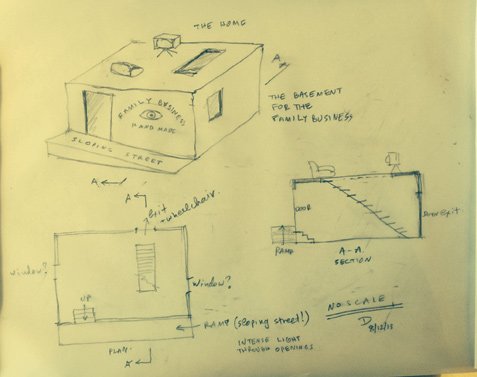 THE HOME
A
FAMILY BUSINESS
HAND MADE
SLOPING STREET
THE BASEMENT
FOR THE
FAMILY BUSINESS
A
A
exit
+ wheelchair.
window?
window?
UP
RAMP (sloping street!)
PLAN
A
INTENSE LIGHT
THROUGH OPENINGS
DOOR
exit
RAMP
A-A
SECTION
NO SCALE